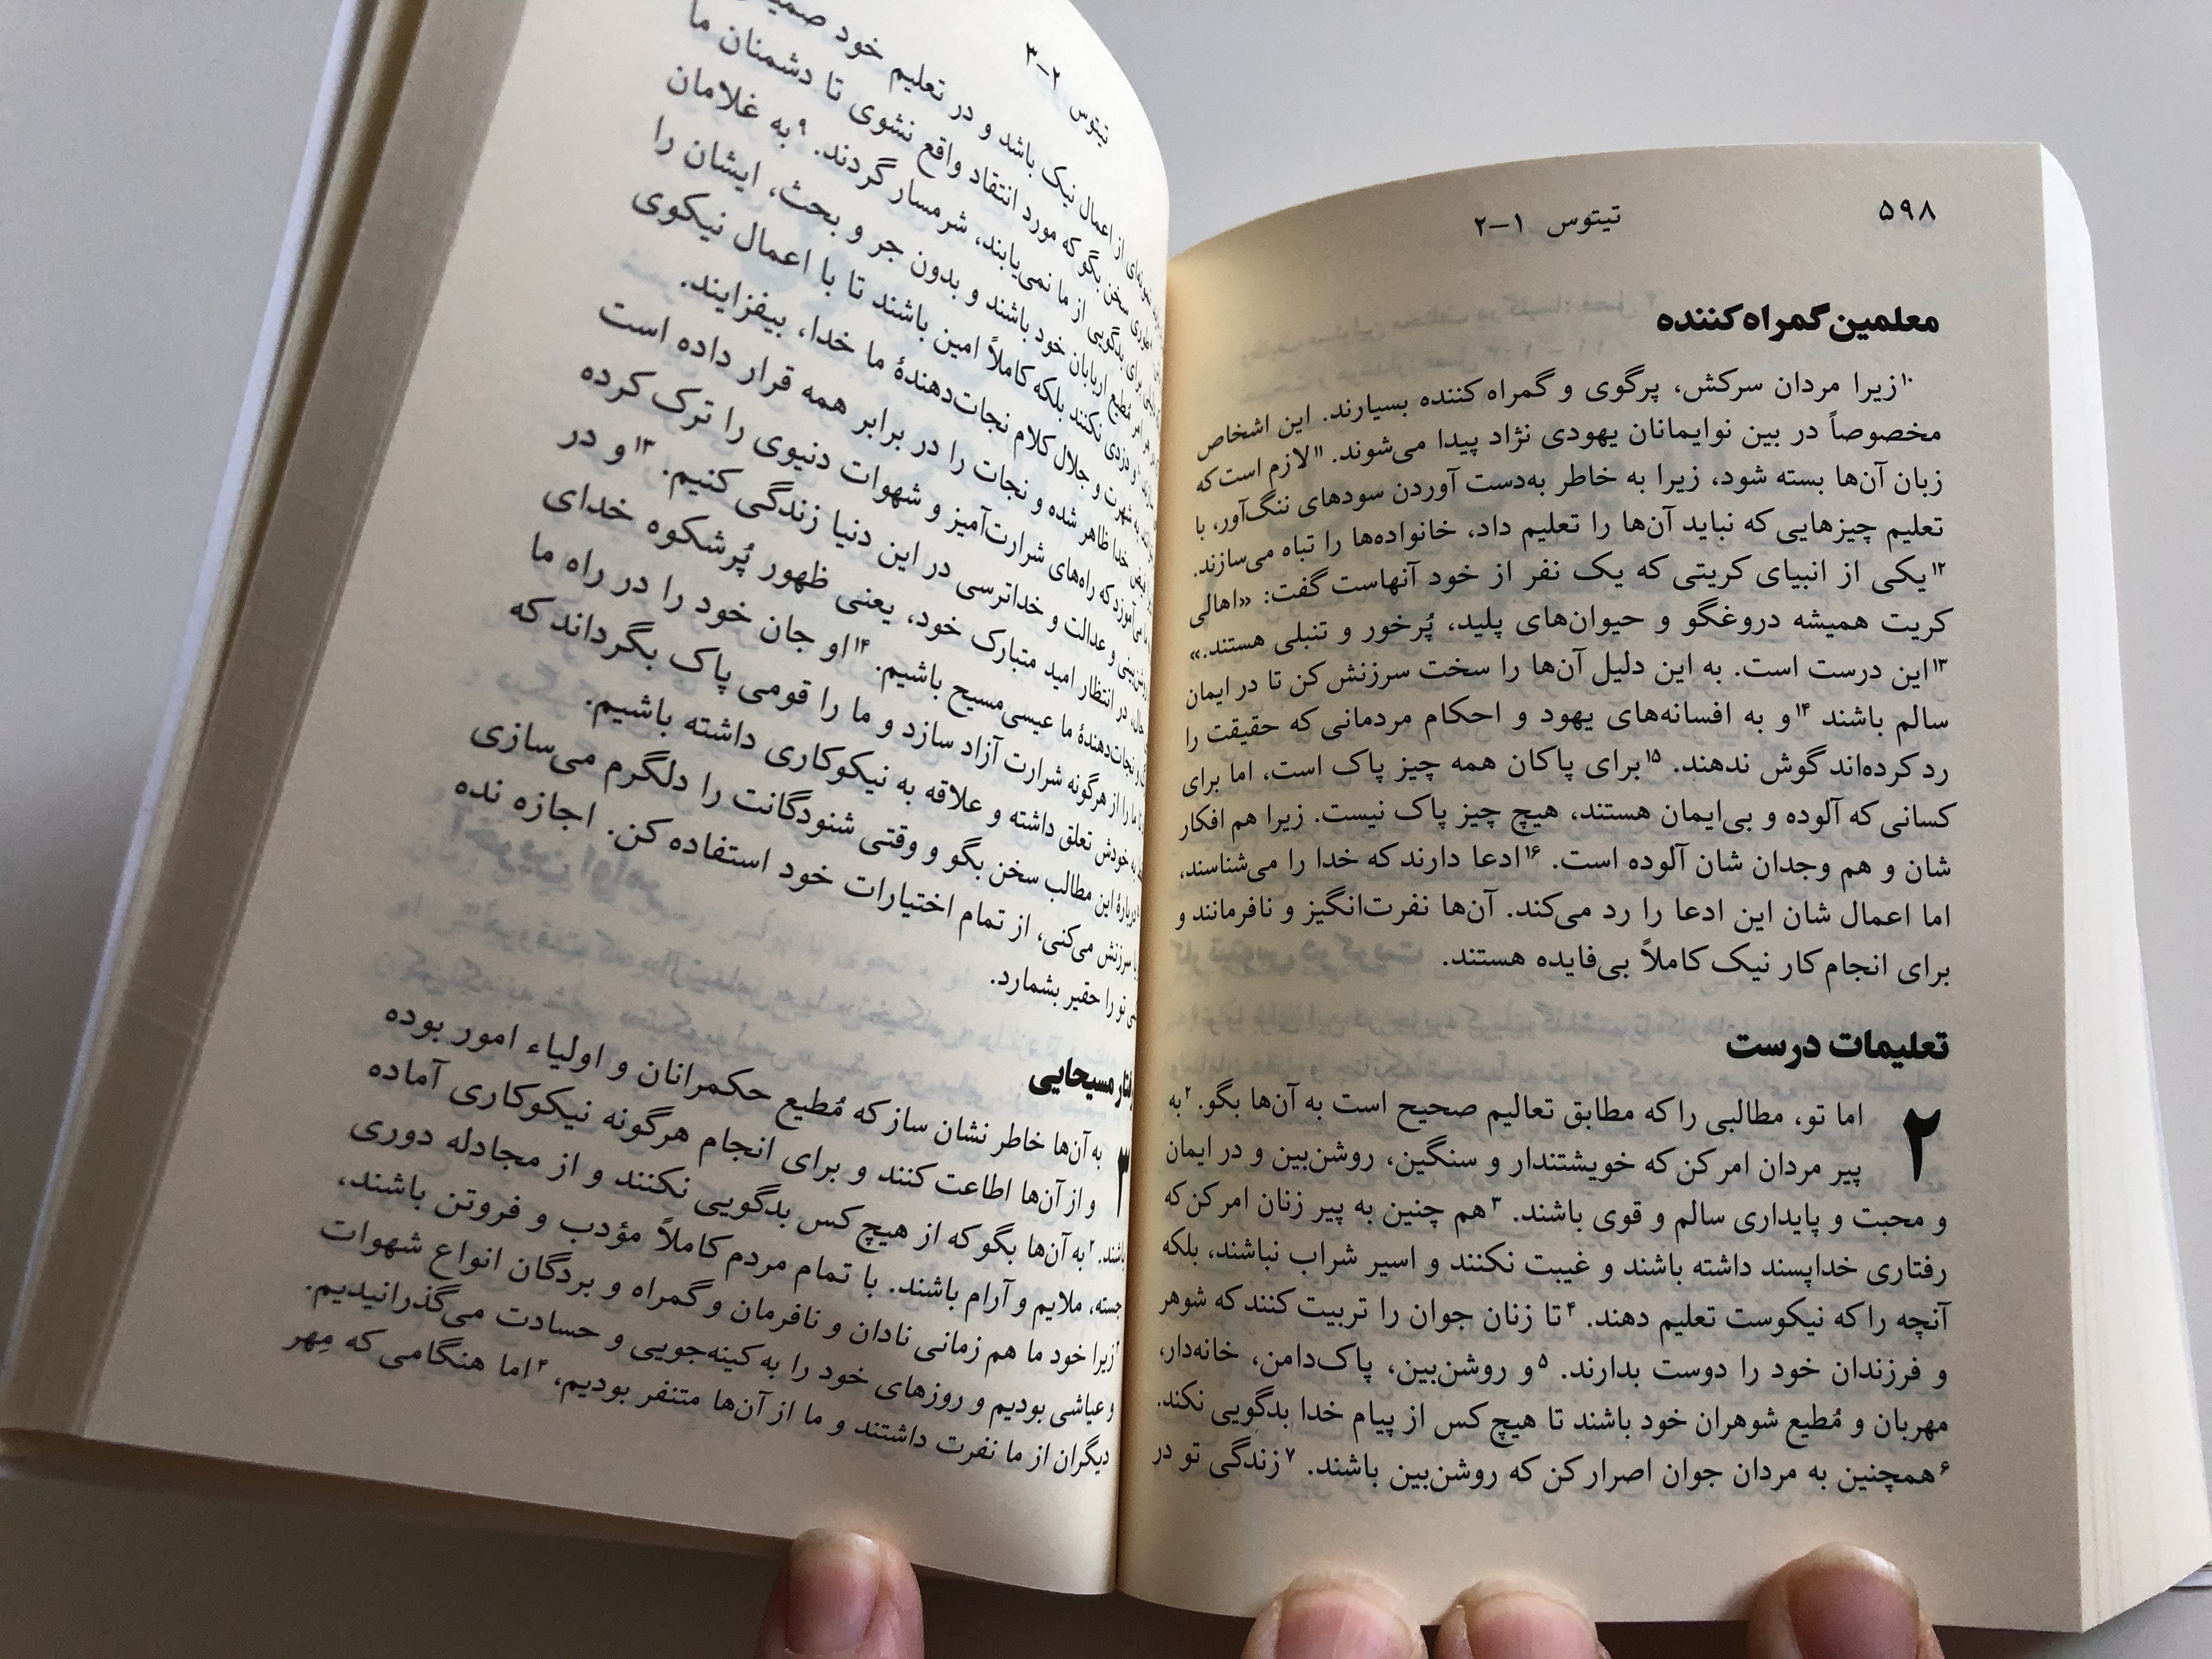 ۵۹۸
تیتوس ۱–۲
معلمین گمراه‌کننده
۱۰زیرا مردان سرکش، پرگوی و گمراه کننده بسیارند. این اشخاص
مخصوصاً در بین نوایمانان یهودی نژاد پیدا می‌شوند. ۱۱لازم است که
زبان آن‌ها بسته شود، زیرا به خاطر به‌دست آوردن سودهای ننگ‌آور، با
تعلیم چیزهایی که نباید آن‌ها را تعلیم داد، خانواده‌ها را تباه می‌سازند.
۱۲یکی از انبیای کریتی که یک نفر از خود آنهاست گفت: «اهالی
کریت همیشه دروغگو و حیوان‌های پلید، پُرخور و تنبلی هستند.»
۱۳این درست است. به این دلیل آن‌ها را سخت سرزنش کن تا در ایمان
سالم باشند ۱۴و به افسانه‌های یهود و احکام مردمانی که حقیقت را
رد کرده‌اند گوش ندهند. ۱۵برای پاکان همه چیز پاک است، اما برای
کسانی که آلوده و بی‌ایمان هستند، هیچ چیز پاک نیست. زیرا هم افکار
شان و هم وجدان شان آلوده است. ۱۶ادعا دارند که خدا را می‌شناسند،
اما اعمال شان این ادعا را رد می‌کند. آن‌ها نفرت‌انگیز و نافرمانند و
برای انجام کار نیک کاملاً بی‌فایده هستند.
تعلیمات درست
۲ اما تو، مطالبی را که مطابق تعالیم صحیح است به آن‌ها بگو. ۲به
پیر مردان امر کن که خویشتندار و سنگین، روشن‌بین و در ایمان
و محبت و پایداری سالم و قوی باشند. ۳هم چنین به پیر زنان امر کن که
رفتاری خداپسند داشته باشند و غیبت نکنند و اسیر شراب نباشند، بلکه
آنچه را که نیکوست تعلیم دهند. ۴تا زنان جوان را تربیت کنند که شوهر
و فرزندان خود را دوست بدارند. ۵و روشن‌بین، پاک‌دامن، خانه‌دار،
مهربان و مُطیع شوهران خود باشند تا هیچ کس از پیام خدا بدگویی نکند.
۶همچنین به مردان جوان اصرار کن که روشن‌بین باشند. ۷زندگی تو در
تیتوس ۲–۳
از اعمال نیک باشد و در تعلیم خود
سخن بگو که مورد انتقاد واقع نشوی تا دشمنان ما
برای بدگویی از ما نمی‌یابند، شرمسار گردند. ۹به غلامان
مُطیع اربابان خود باشند و بدون جر و بحث، ایشان را
و دزدی نکنند بلکه کاملاً امین باشند تا با اعمال نیکوی
به شهرت و جلال کلام نجات‌دهندهٔ ما خدا، بیفزایند.
خدا ظاهر شده و نجات را در برابر همه قرار داده است
می‌آموزد که راه‌های شرارت‌آمیز و شهوات دنیوی را ترک کرده
و عدالت و خداترسی در این دنیا زندگی کنیم. ۱۳و در
در انتظار امید متبارک خود، یعنی ظهور پُرشکوه خدای
نجات‌دهندهٔ ما عیسی مسیح باشیم. ۱۴او جان خود را در راه ما
ما را از هرگونه شرارت آزاد سازد و ما را قومی پاک بگرداند که
به خودش تعلق داشته و علاقه به نیکوکاری داشته باشیم.
دربارهٔ این مطالب سخن بگو و وقتی شنودگانت را دلگرم می‌سازی
یا سرزنش می‌کنی، از تمام اختیارات خود استفاده کن. اجازه نده
تو را حقیر بشمارد.
رفتار مسیحایی
۳ به آن‌ها خاطر نشان ساز که مُطیع حکمرانان و اولیاء امور بوده
و از آن‌ها اطاعت کنند و برای انجام هرگونه نیکوکاری آماده
باشند. ۲به آن‌ها بگو که از هیچ کس بدگویی نکنند و از مجادله دوری
جسته، ملایم و آرام باشند. با تمام مردم کاملاً مؤدب و فروتن باشند،
زیرا خود ما هم زمانی نادان و نافرمان و گمراه و بردگان انواع شهوات
و عیاشی بودیم و روزهای خود را به کینه‌جویی و حسادت می‌گذرانیدیم.
دیگران از ما نفرت داشتند و ما از آن‌ها متنفر بودیم، ۴اما هنگامی که مِهر